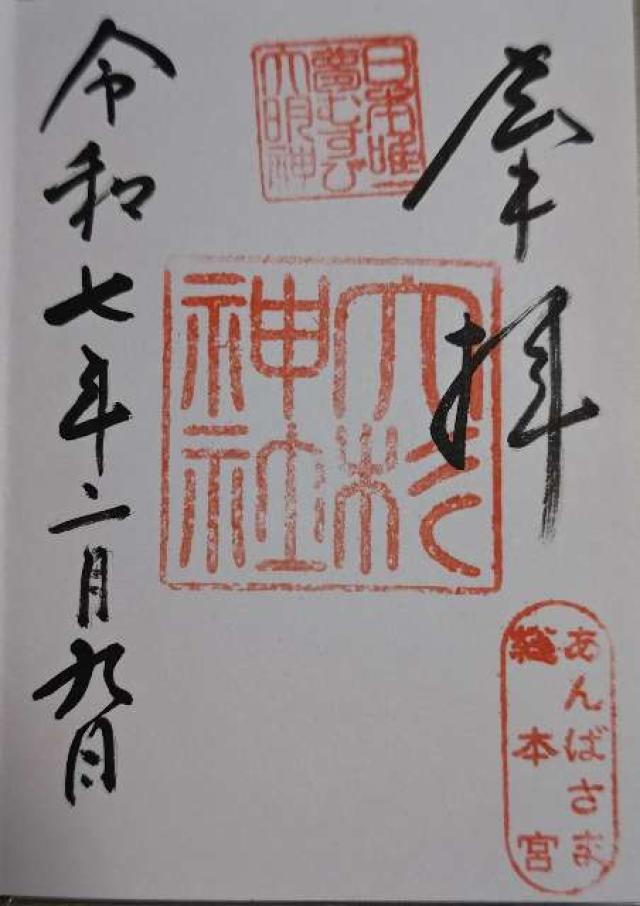 奉拝
日本唯一
夢むすび
大明神
大杉
神社
令和七年二月九日
あんばさま
総本宮